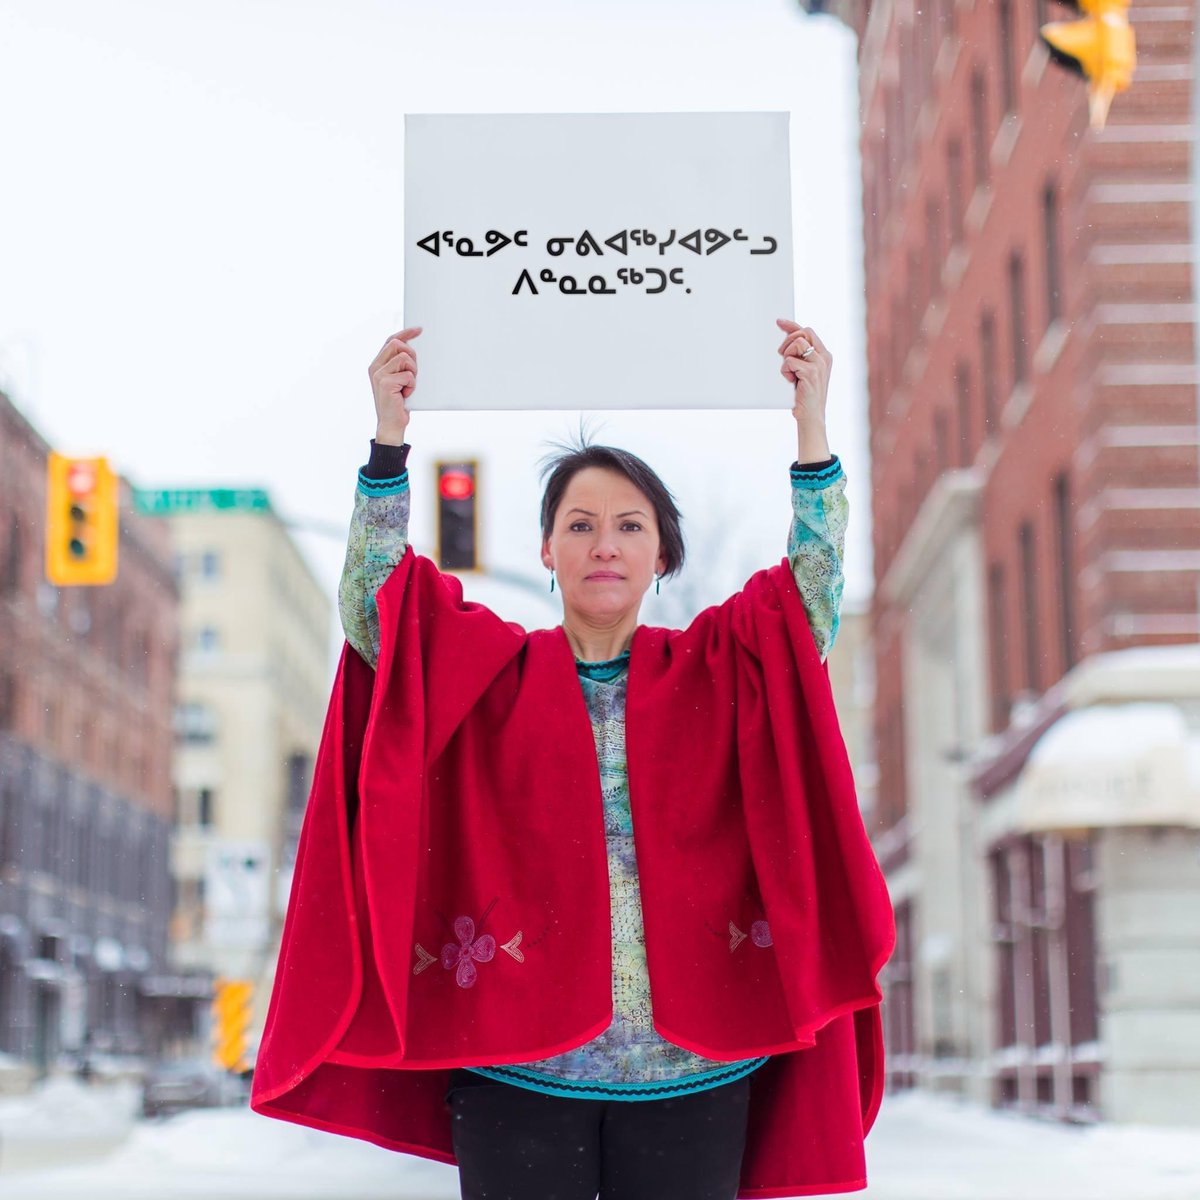 ᐊᕐᓇᕗᑦ ᓂᕕᐊᖅᓯᐊᕗᓪᓗ
ᐱᓐᓇᓇᖅᑐᑦ.